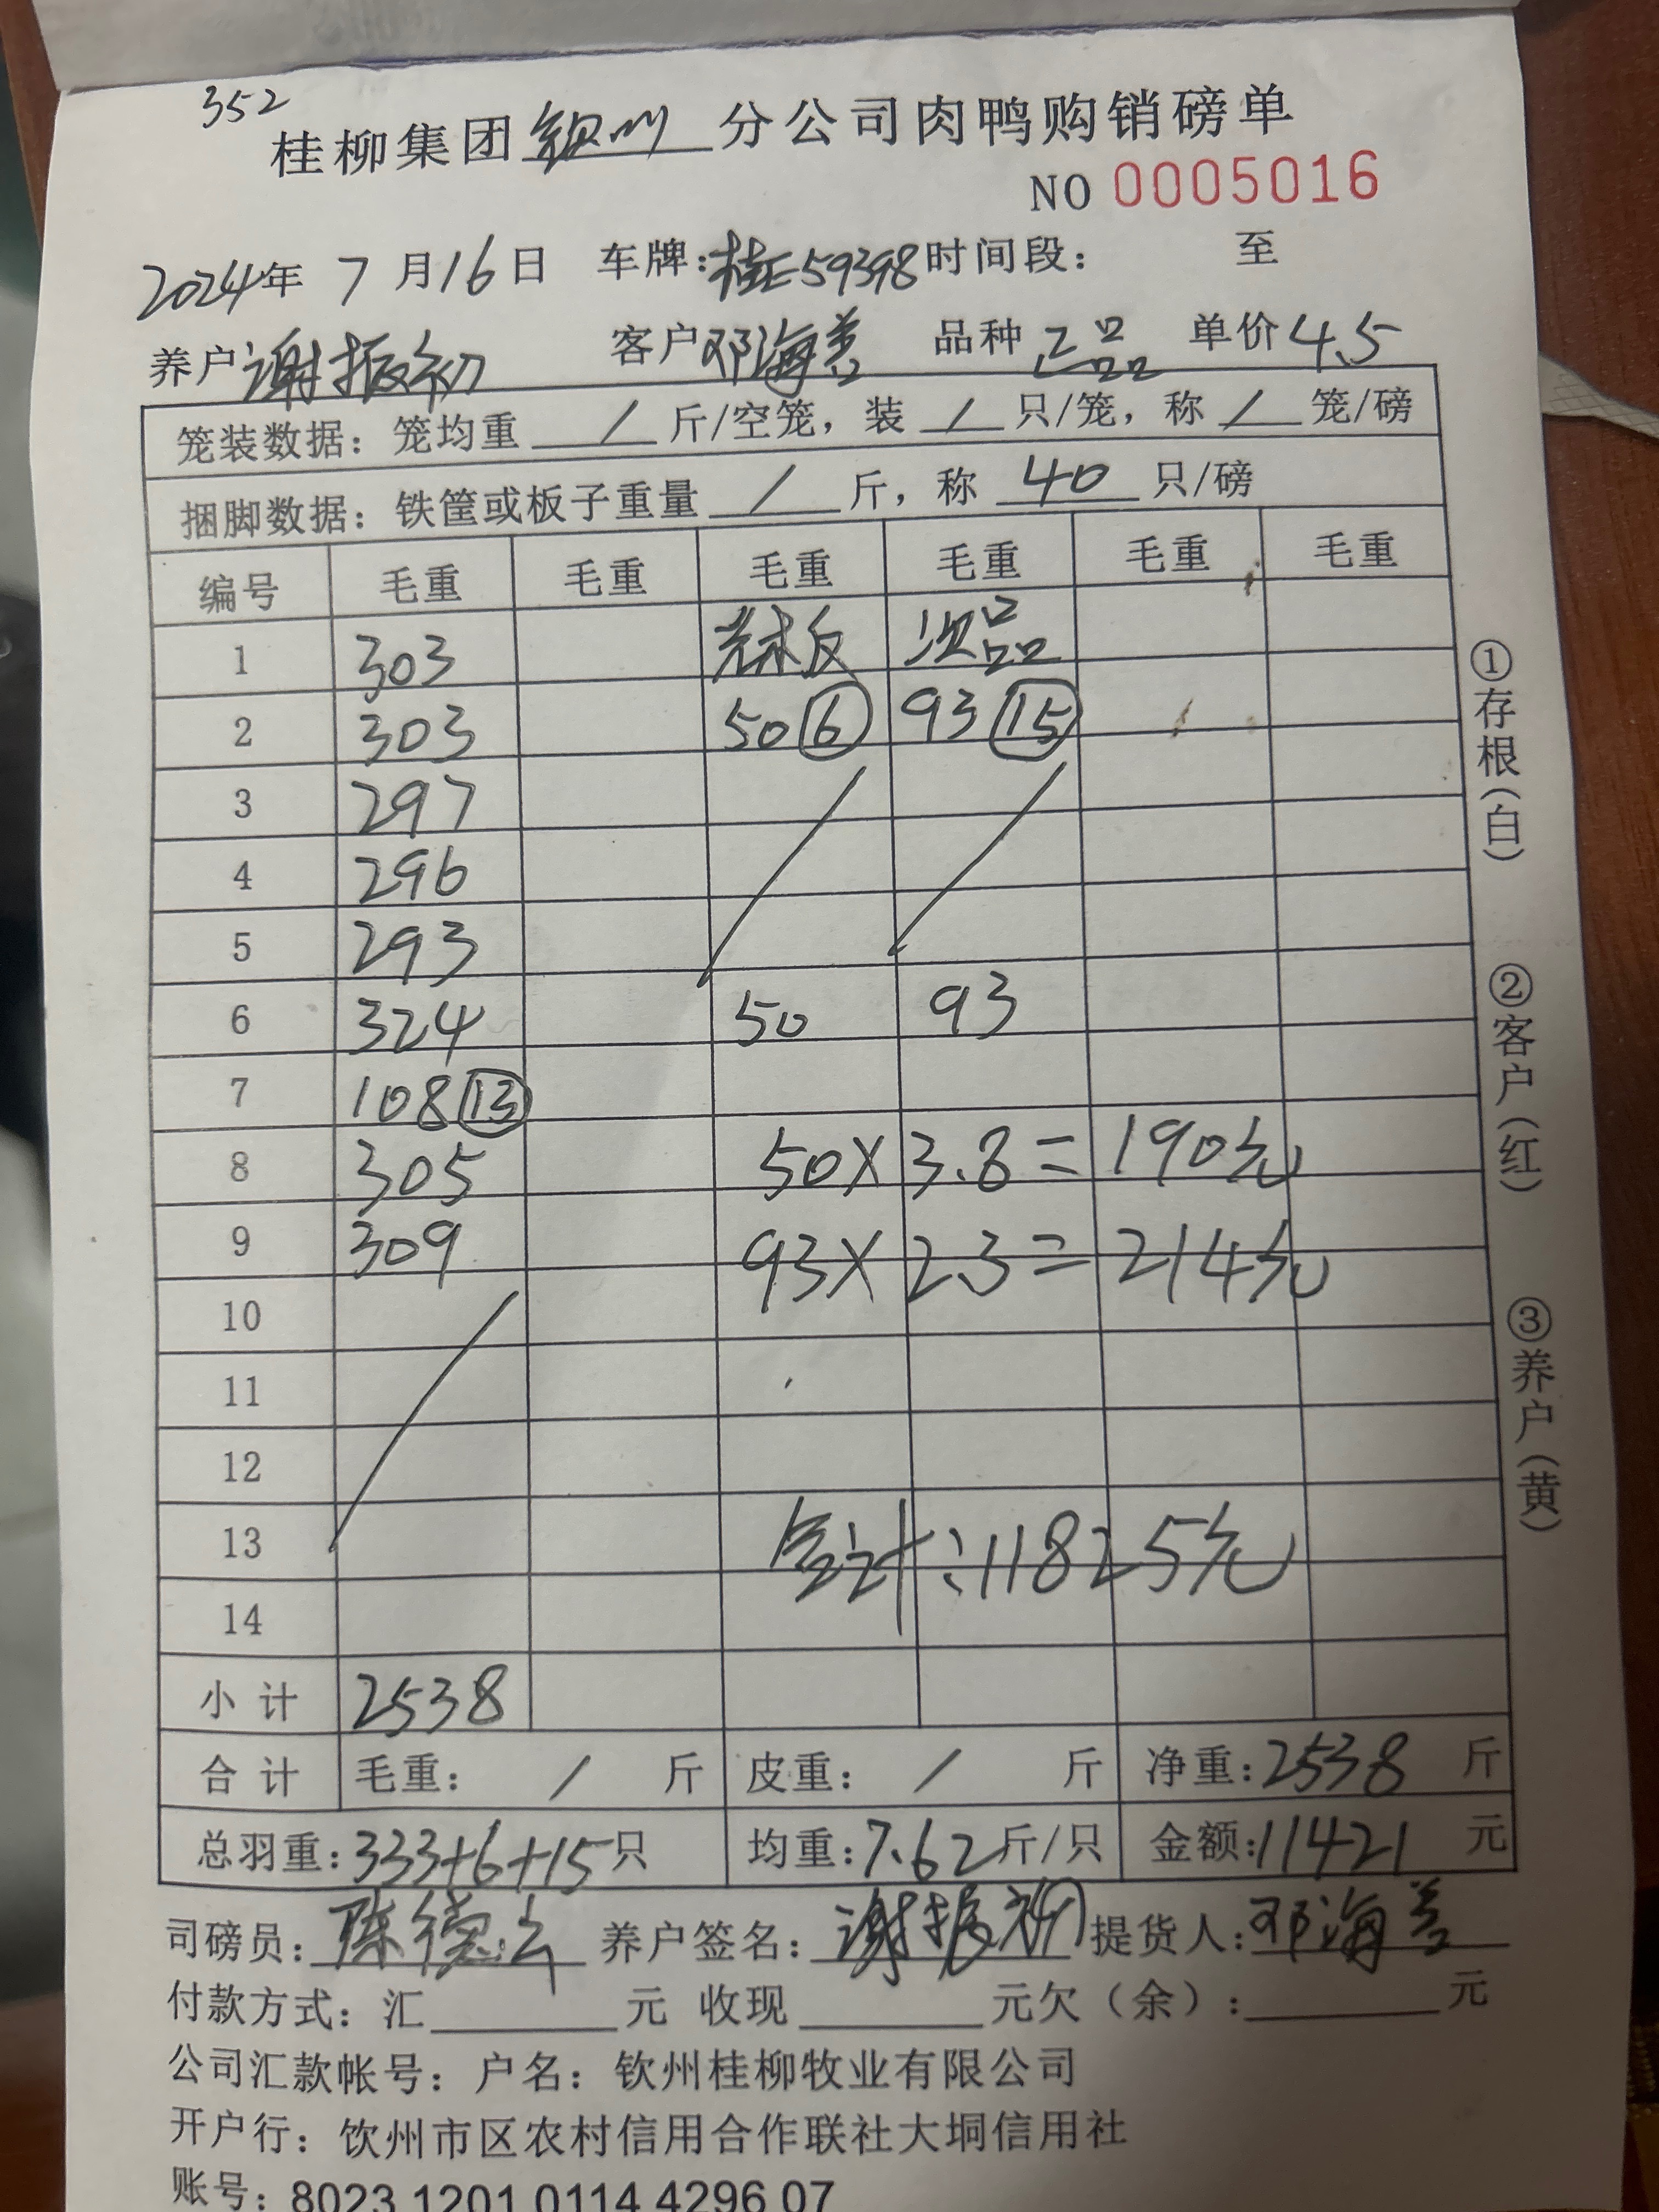 352
桂柳集团钦州分公司肉鸭购销磅单
NO 0005016
2024年 7 月16日 车牌:桂E59398 时间段: 至
养户 谢振初 客户 邓海善 品种 正品 单价 4.5
笼装数据: 笼均重 / 斤/空笼, 装 / 只/笼, 称 / 笼/磅
捆脚数据: 铁筐或板子重量 / 斤, 称 40 只/磅
编号 毛重 毛重 毛重 毛重 毛重 毛重
1 303 次品
2 303 50 ⑥ 93 ⑮
3 297
4 296
5 293
6 324 50 93
7 108 ⑬
8 305 50×3.8=190元
9 309 93×2.3=214元
10
11
12
13 合计:11825元
14
小计 2538
合计 毛重: / 斤 皮重: / 斤 净重:2538 斤
总羽重:333+6+15只 均重:7.62斤/只 金额:11421 元
司磅员: 陈德 养户签名: 谢振初 提货人: 邓海善
付款方式: 汇 元 收现 元欠(余): 元
公司汇款帐号: 户名: 钦州桂柳牧业有限公司
开户行: 钦州市区农村信用合作联社大垌信用社
账号: 8023 1201 0114 4296 07
①存根(白)
②客户(红)
③养户(黄)